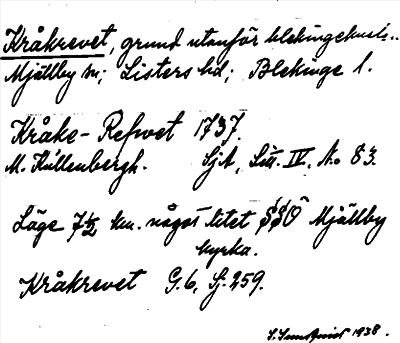 Kråkrevet, grund utanför blekingekust..
Mjällby sn; Listers hd; Blekinge l.
Kråke-Refwet 1737.
M. Kullenbergh. SjA, Litt. IV, No 83.
Läge 7½ km. något litet SSO Mjällby
kyrka.
Kråkrevet G.6, Sj. 259.
1938.